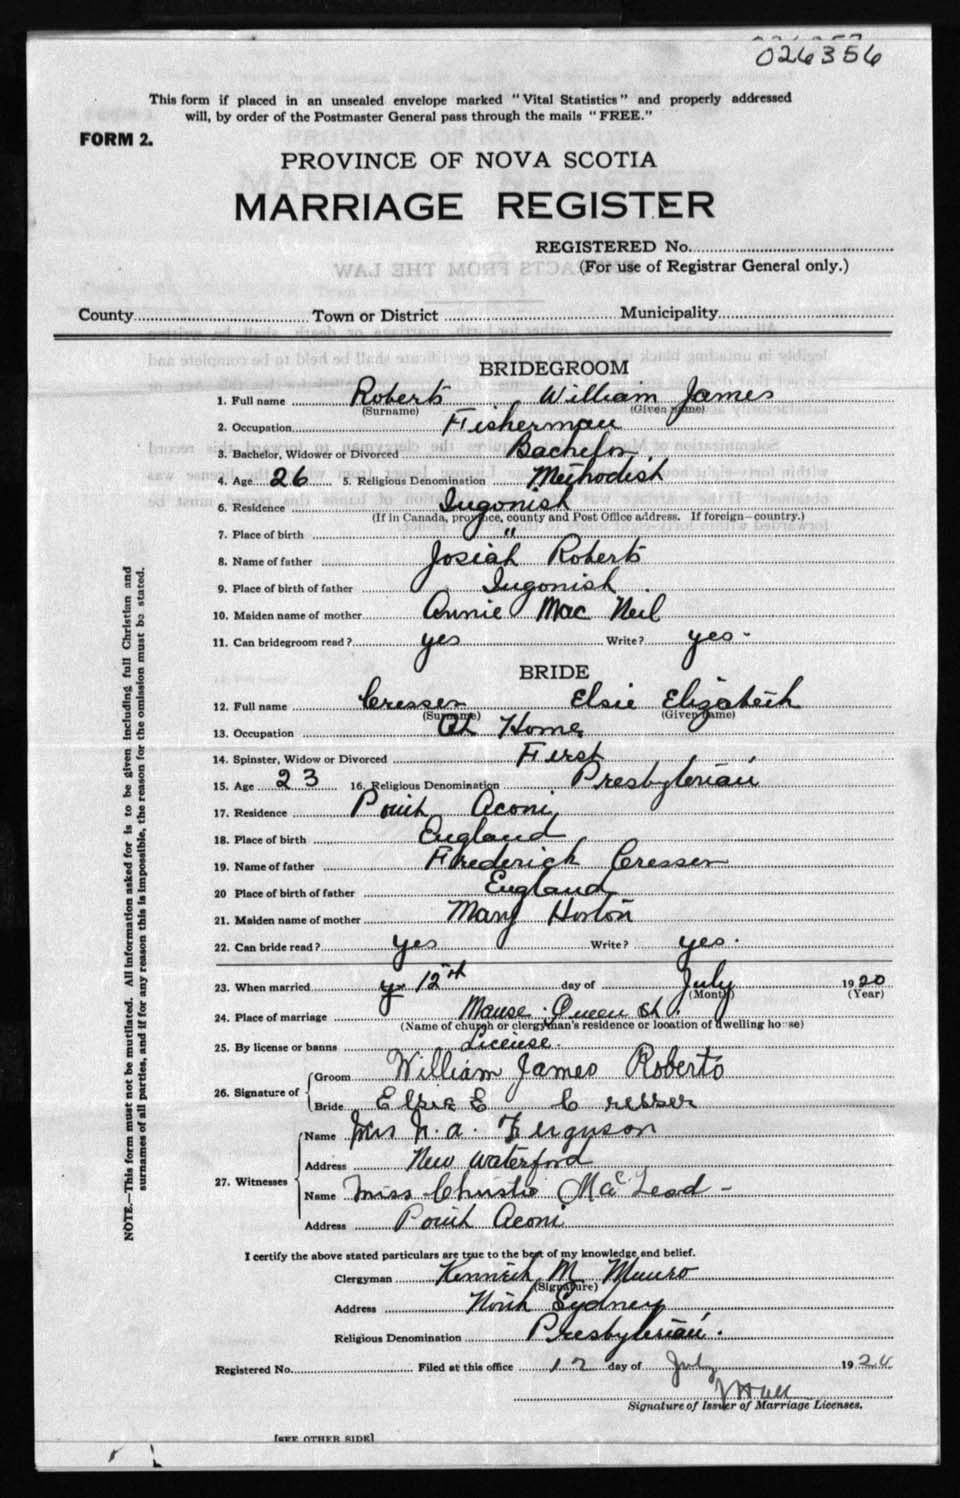 026356
This form if placed in an unsealed envelope marked "Vital Statistics" and properly addressed
will, by order of the Postmaster General pass through the mails "FREE."
FORM 2.
PROVINCE OF NOVA SCOTIA
MARRIAGE REGISTER
REGISTERED No.
(For use of Registrar General only.)
County Town or District Municipality
BRIDEGROOM
1. Full name Roberts William James
(Surname) (Given name)
2. Occupation Fisherman
3. Bachelor, Widower or Divorced Bachelor.
4. Age 26 5. Religious Denomination Methodist
6. Residence Ingonish
(If in Canada, province, county and Post Office address. If foreign—country.)
7. Place of birth "
8. Name of father Josiah Roberts
9. Place of birth of father Ingonish
10. Maiden name of mother Annie Mac Neil
11. Can bridegroom read? yes Write? yes -
BRIDE
12. Full name Cresser Elsie Elizabeth
(Surname) (Given name)
13. Occupation At Home
14. Spinster, Widow or Divorced First
15. Age 23 16. Religious Denomination Presbyterian
17. Residence Point Aconi
18. Place of birth England
19. Name of father Frederick Cresser
20 Place of birth of father England
21. Maiden name of mother Mary Horton
22. Can bride read? yes Write? yes.
23. When married 12th day of July 1920
(Month) (Year)
24. Place of marriage Manse Queen St.
(Name of church or clergyman's residence or location of dwelling house)
25. By license or banns License.
26. Signature of Groom William James Roberts
Bride Elsie E Cresser
27. Witnesses Name Mrs N. A. Ferguson
Address New Waterford
Name Miss Christie MacLeod -
Address Point Aconi
I certify the above stated particulars are true to the best of my knowledge and belief.
Clergyman Kenneth M Munro
(Signature)
Address North Sydney
Religious Denomination Presbyterian.
Registered No. Filed at this office 12 day of July 192
Signature of Issuer of Marriage Licenses.
[SEE OTHER SIDE]
NOTE.—This form must not be mutilated. All information asked for is to be given including full Christian and
surnames of all parties, and if for any reason this is impossible, the reason for the omission must be stated.